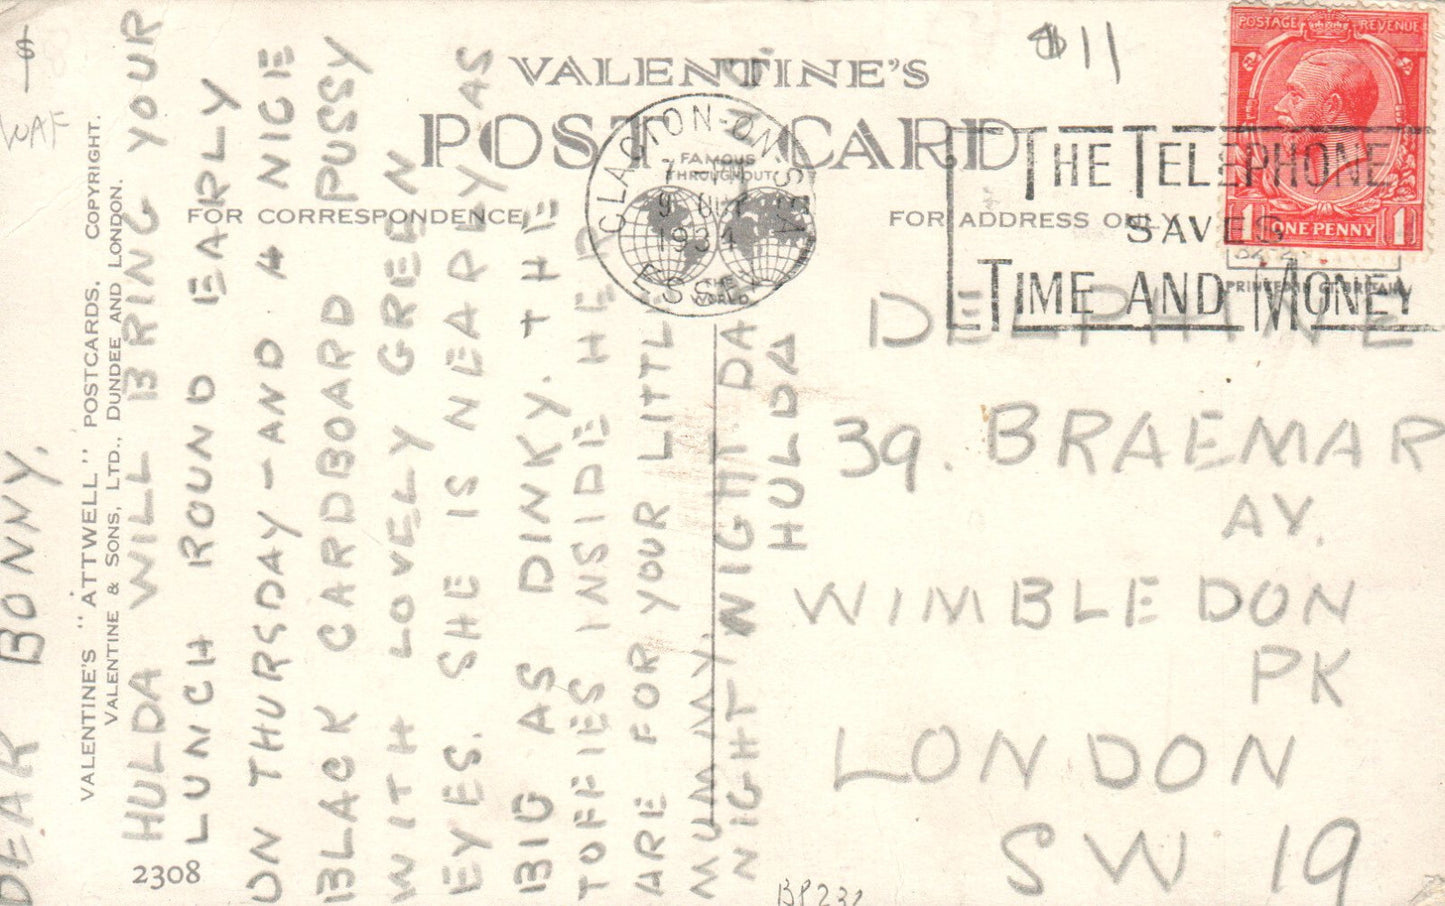 VALENTINE'S
POST CARD
FAMOUS
THROUGHOUT
THE
WORLD
FOR CORRESPONDENCE
FOR ADDRESS ONLY
$11
POSTAGE REVENUE
1 ONE PENNY 1
CLACTON-ON-SEA
1934
ESSEX
THE TELEPHONE
SAVES
TIME AND MONEY
$
WAF
VALENTINE'S "ATTWELL" POSTCARDS. COPYRIGHT.
VALENTINE & SONS, LTD., DUNDEE AND LONDON.
2308
DEAR BONNY.
HULDA WILL BRING YOUR
LUNCH ROUND EARLY
ON THURSDAY - AND A NICE
BLACK CARDBOARD PUSSY
WITH LOVELY GREEN
EYES. SHE IS NEARLY AS
BIG AS DINKY. THE
TOFFIES INSIDE HER
ARE FOR YOUR LITTLE
MUMMY.
NIGHT WIGHT DA
HULDA
DELPHINE
39. BRAEMAR
AV.
WIMBLEDON
PK
LONDON
SW 19